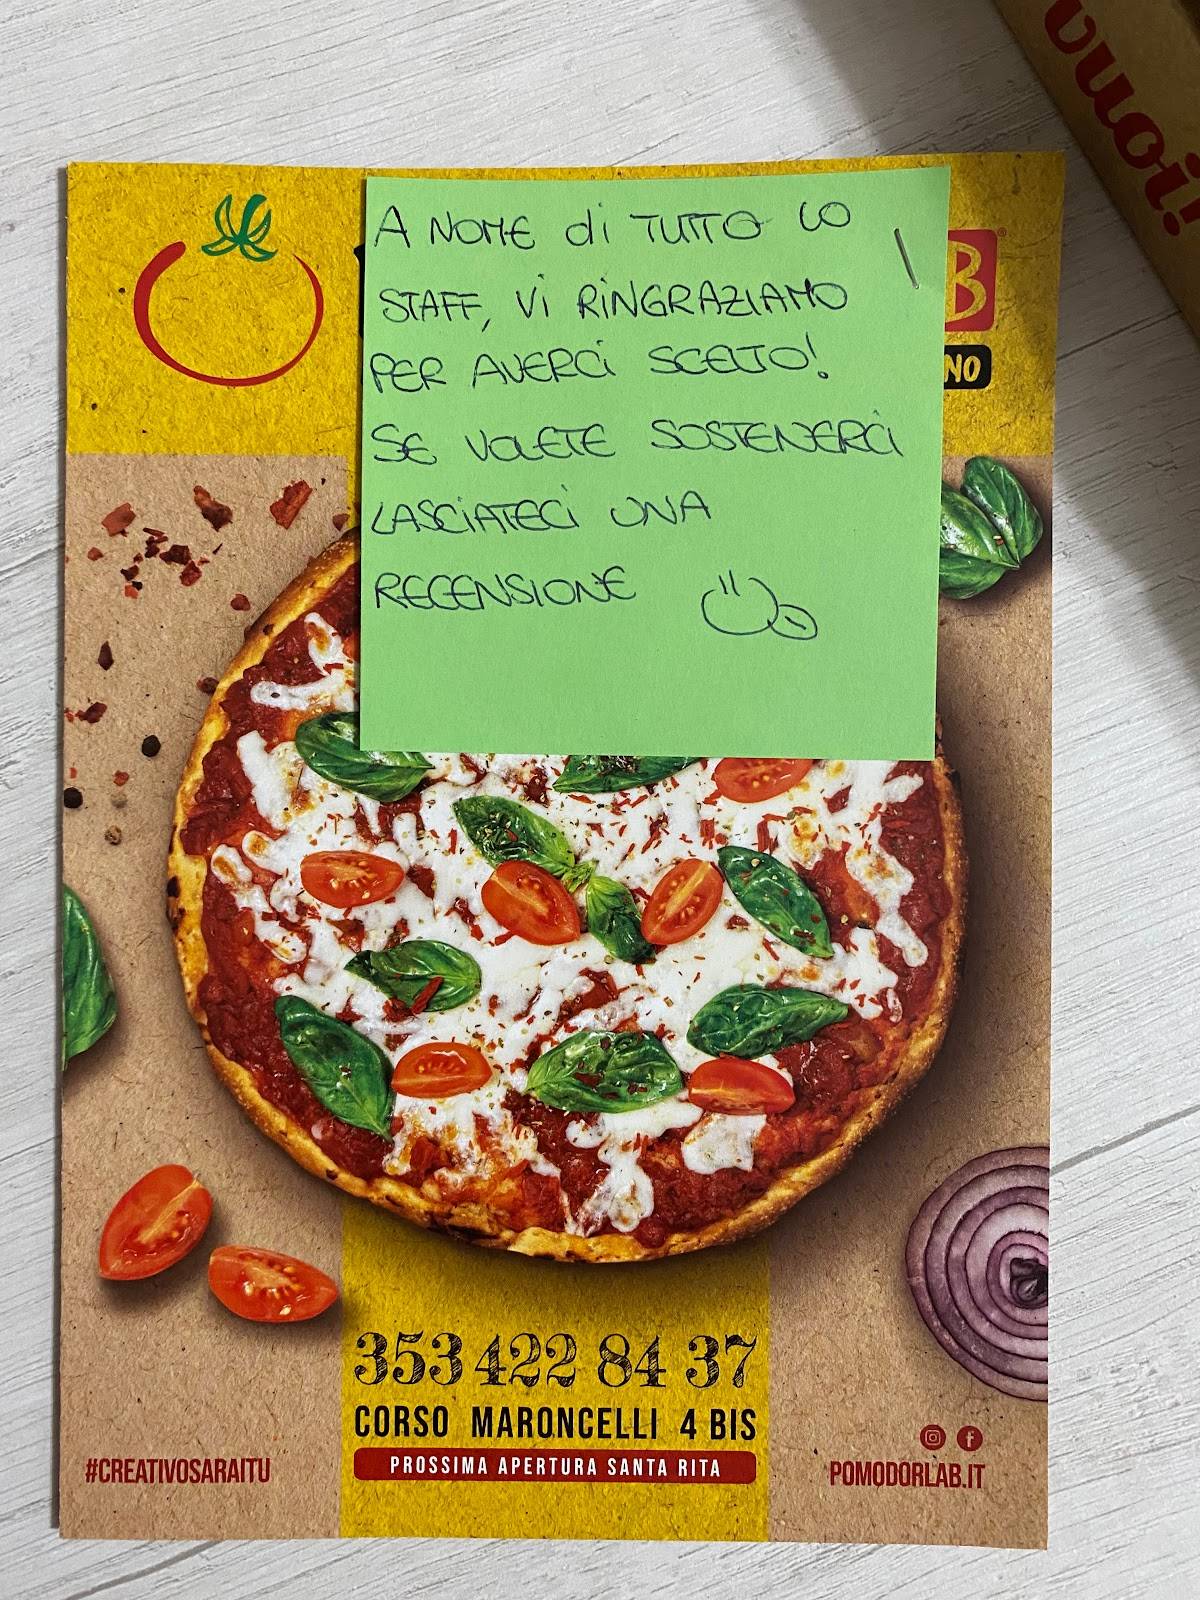 A NOME di TUTTO LO
STAFF, Vi RiNGRAZiAMO
PER AVERCi SCELTO!
SE VOLETE SOSTENERCi
LASCiATECi UNA
RECENSIONE
B
NO
vuoi!
353 422 84 37
CORSO MARONCELLI 4 BIS
PROSSIMA APERTURA SANTA RITA
#CREATIVOSARAITU
POMODORLAB.IT